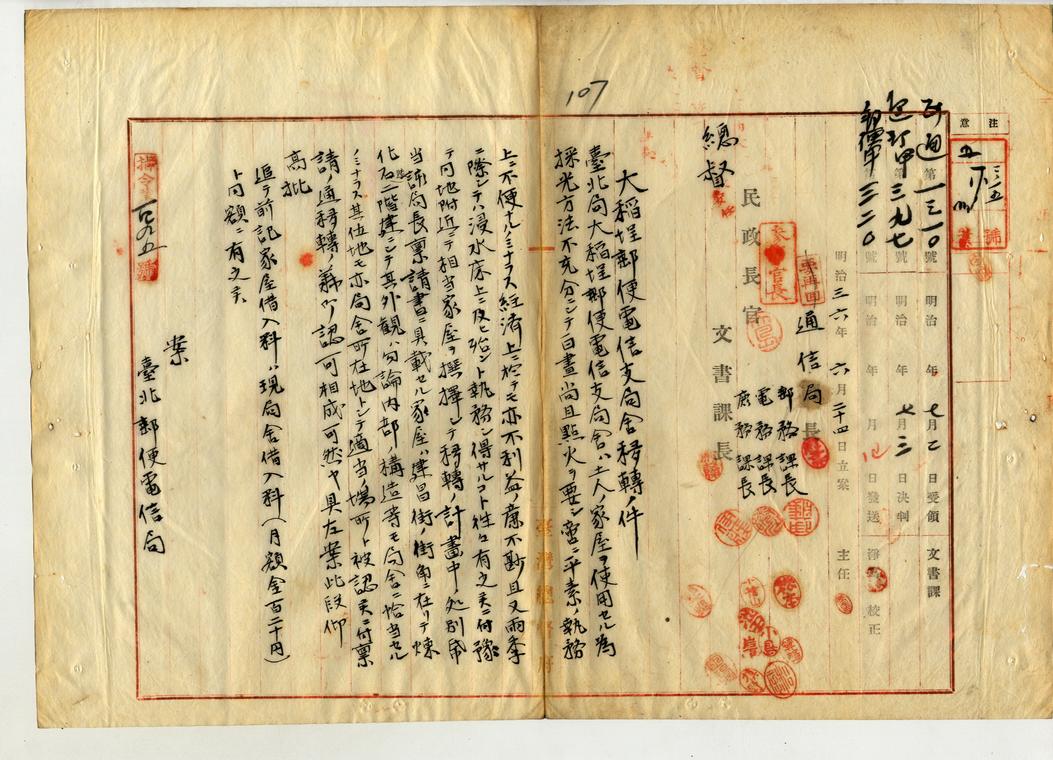 107
注意
民通第一三一〇號 明治 年 七月 二日受領 文書課
第三九七號 明治 年 七月三日決判
三二〇號 明治 年 月 日發送 淨書 校正
明治三六年 六月二十四日立案 主任
通信局長
郵務課長
電務課長
庶務課長
民政長官 文書課長
總督
大稻埕郵便電信支局舍移轉ノ件
臺北局大稻埕郵便電信支局舍ハ土人ノ家屋ヲ使用セル為
採光方法不充分ニテ白晝尚且點火ヲ要シ啻ニ平素ノ執務
上ニ不便ナルノミナラス經濟上ニ於テモ亦不利益ノ廉不尠且又雨季
ニ際シテハ浸水床上ニ及ヒ殆ント執務シ得サルコト往々有之候ニ付豫
テ同地附近ニテ相當家屋ヲ撰擇シテ移轉ノ計畫中ノ処別帋
当該局長稟請書ニ具載セル家屋ハ建昌街ノ街角ニ在リテ煉
化石二階建ニシテ其外観ハ勿論内部ノ構造等モ局舍ニ恰当セル
ノミナラス其位地モ局舍所在地トシテ適当ノ場所ト被認候ニ付稟
請ノ通移轉ノ義御認可相成可然ヤ具左案此段仰
高批
追テ前記家屋借入料ハ現局舍借入料(月額金百二十円)
ト同額ニ有之候
案
臺北郵便電信局
指令第一八九五號
臺灣總督府